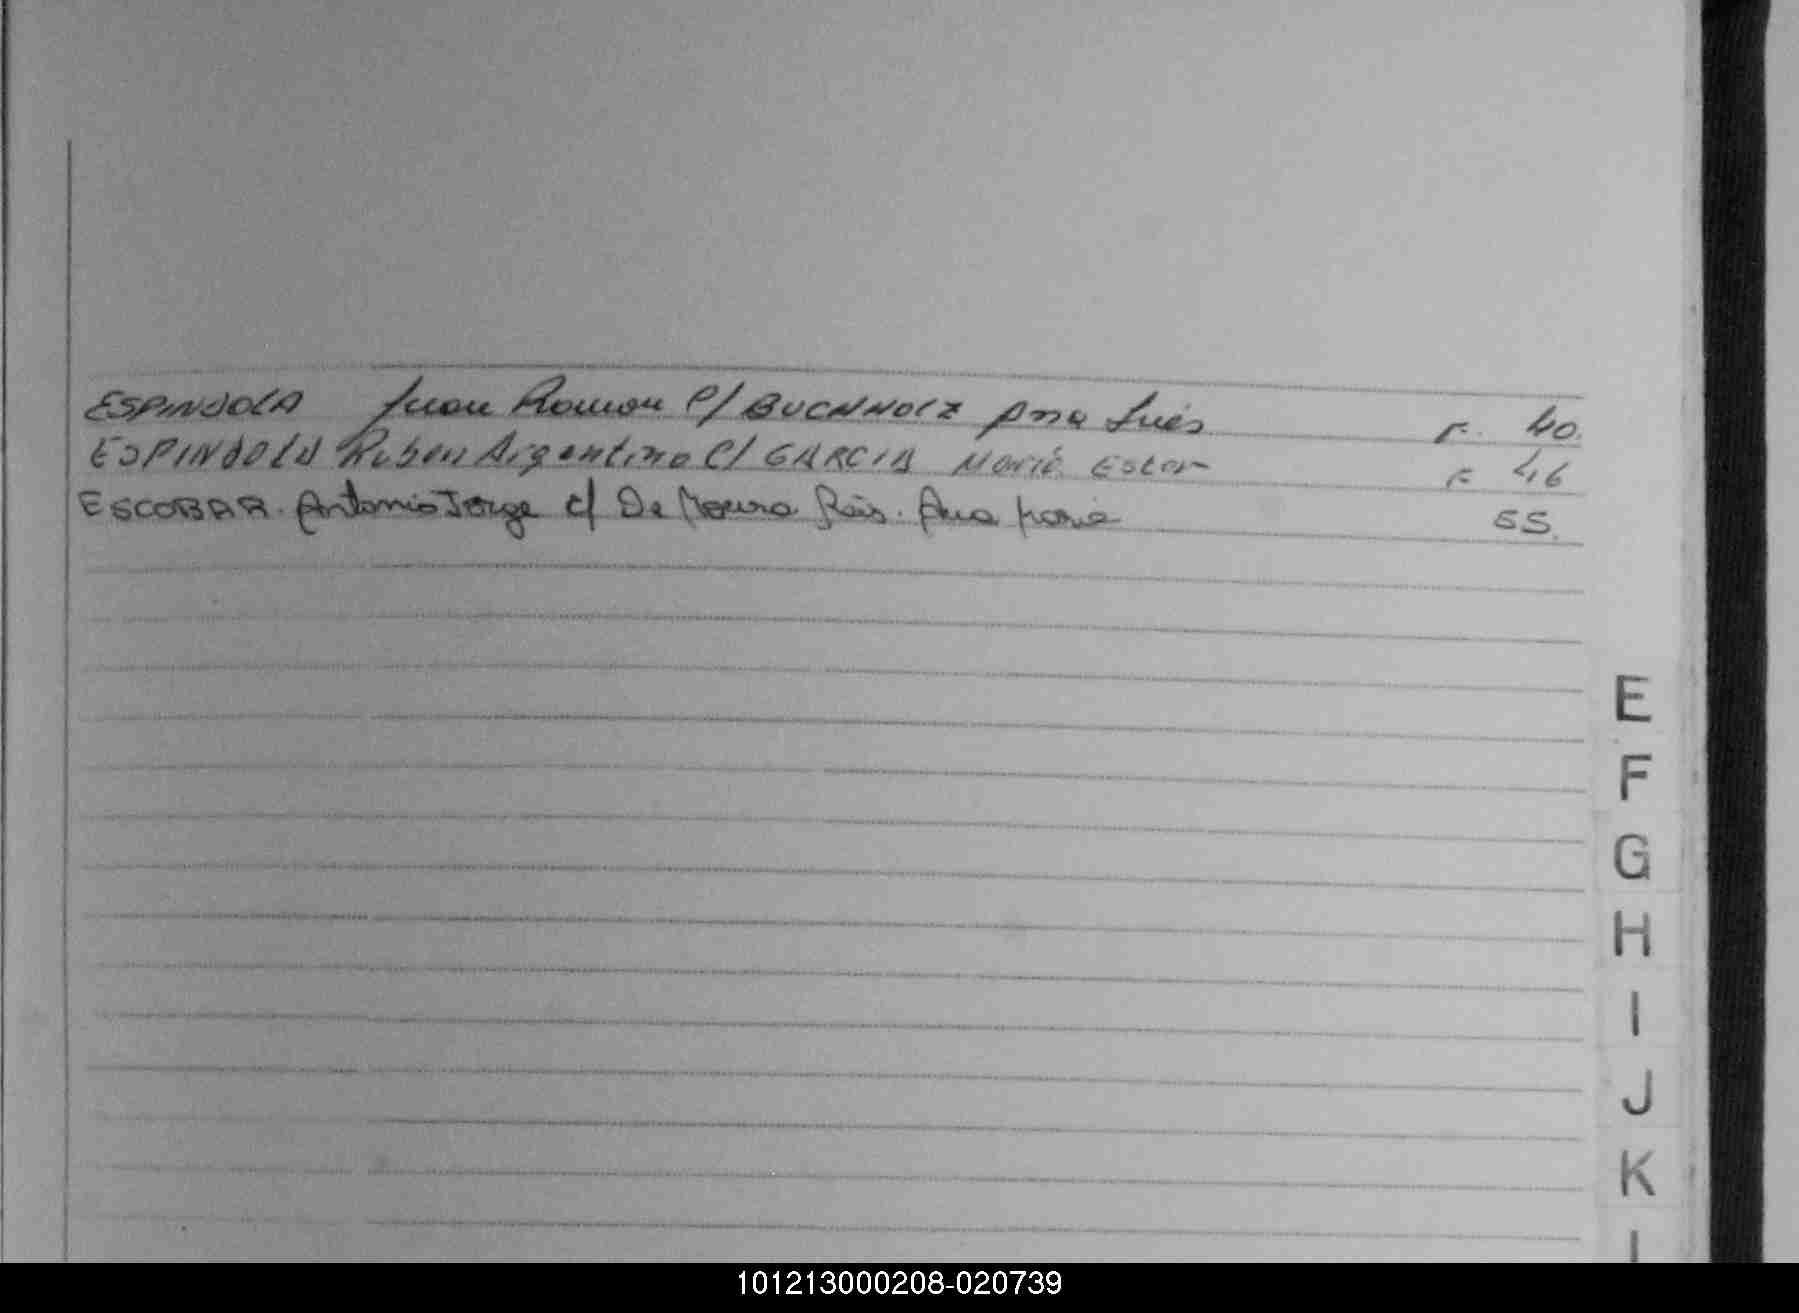 ESPINDOLA Juan Ramon C/ BUCHHOLZ Ana Inés F. 40.
ESPINDOLA Ruben Argentino C/ GARCIA Maria Ester F. 46
ESCOBAR. Antonio Jorge c/ De Moura Reis. Ana Maria 55.
E
F
G
H
I
J
K
101213000208-020739